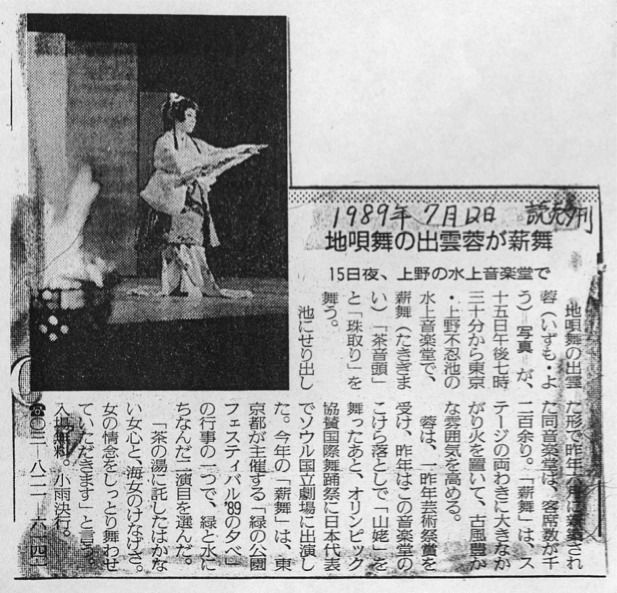 1989年7月12日 読売夕刊
地唄舞の出雲蓉が薪舞
15日夜、上野の水上音楽堂で
地唄舞の出雲
蓉（いずも・よ
う）＝写真＝が、
十五日午後七時
三十分から東京
・上野不忍池の
水上音楽堂で、
薪舞（たきぎま
い）「茶音頭」
と「珠取り」を
舞う。
池にせり出し
た形で昨年八月に新築され
た同音楽堂は、客席数が千
二百余り。「薪舞」は、ス
テージの両わきに大きなか
がり火を置いて、古風豊か
な雰囲気を高める。
蓉は、一昨年芸術祭賞を
受け、昨年はこの音楽堂の
こけら落としで「山姥」を
舞ったあと、オリンピック
協賛国際舞踊祭に日本代表
でソウル国立劇場に出演し
た。今年の「薪舞」は、東
京都が主催する「緑の公園
フェスティバル'89の夕べ」
の行事の一つで、緑と水に
ちなんだ二演目を選んだ。
「茶の湯に託したはかな
い女心と、海女のけなげさ。
女の情念をしっとり舞わせ
ていただきます」と言う。
入場無料。小雨決行。
☎〇三―八二一―六一四